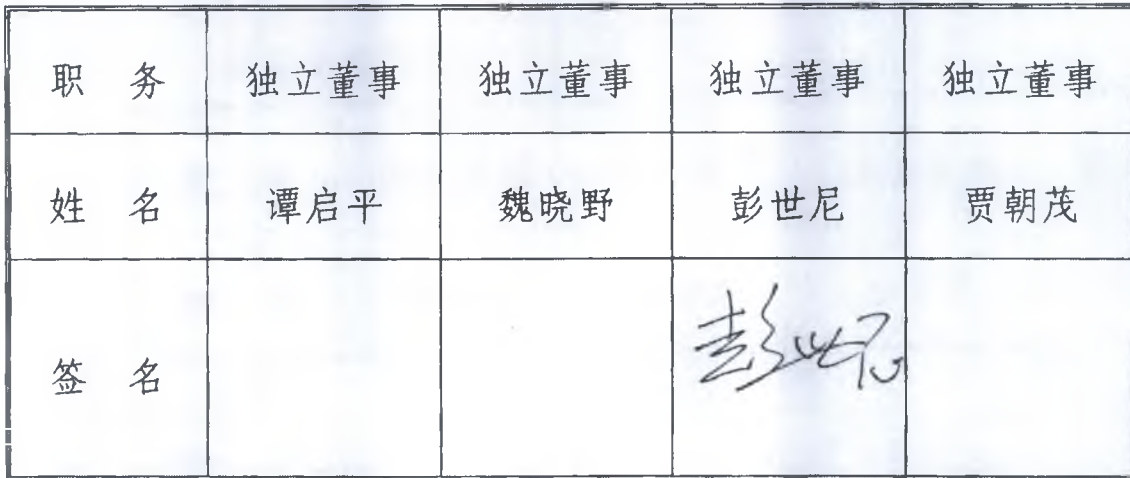 职 务 独立董事 独立董事 独立董事 独立董事
姓 名 谭启平 魏晓野 彭世尼 贾朝茂
签 名 彭世尼